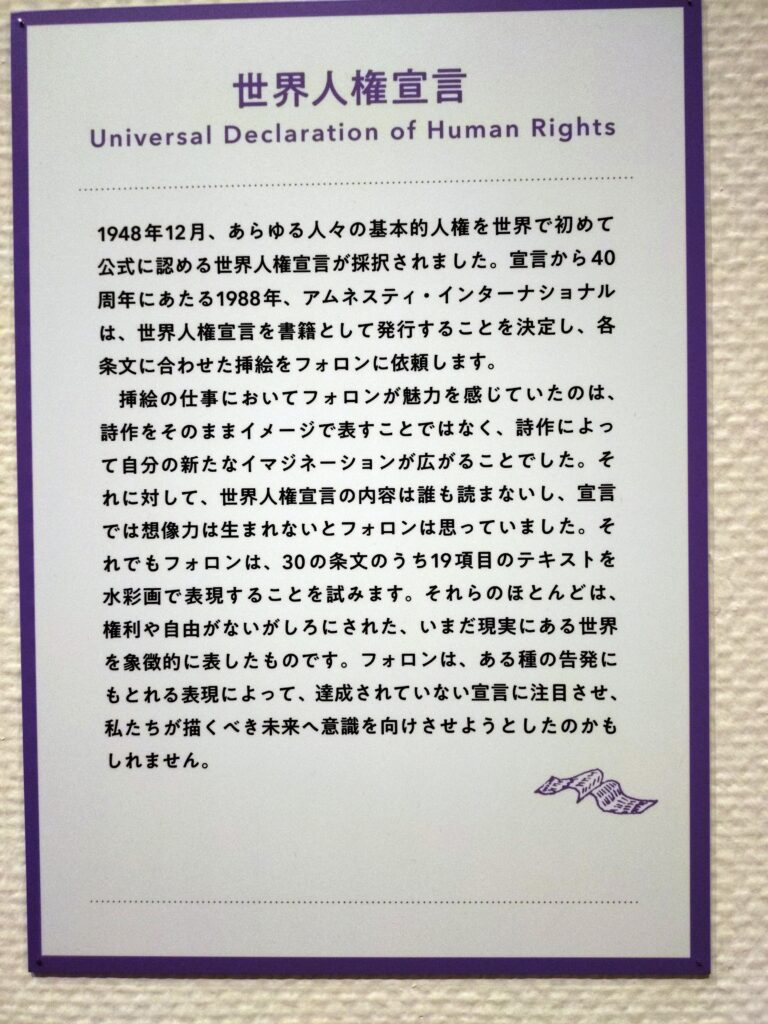 世界人権宣言
Universal Declaration of Human Rights
1948年12月、あらゆる人々の基本的人権を世界で初めて
公式に認める世界人権宣言が採択されました。宣言から40
周年にあたる1988年、アムネスティ・インターナショナル
は、世界人権宣言を書籍として発行することを決定し、各
条文に合わせた挿絵をフォロンに依頼します。
　挿絵の仕事においてフォロンが魅力を感じていたのは、
詩作をそのままイメージで表すことではなく、詩作によっ
て自分の新たなイマジネーションが広がることでした。そ
れに対して、世界人権宣言の内容は誰も読まないし、宣言
では想像力は生まれないとフォロンは思っていました。そ
れでもフォロンは、30の条文のうち19項目のテキストを
水彩画で表現することを試みます。それらのほとんどは、
権利や自由がないがしろにされた、いまだ現実にある世界
を象徴的に表したものです。フォロンは、ある種の告発に
もとれる表現によって、達成されていない宣言に注目させ、
私たちが描くべき未来へ意識を向けさせようとしたのかも
しれません。